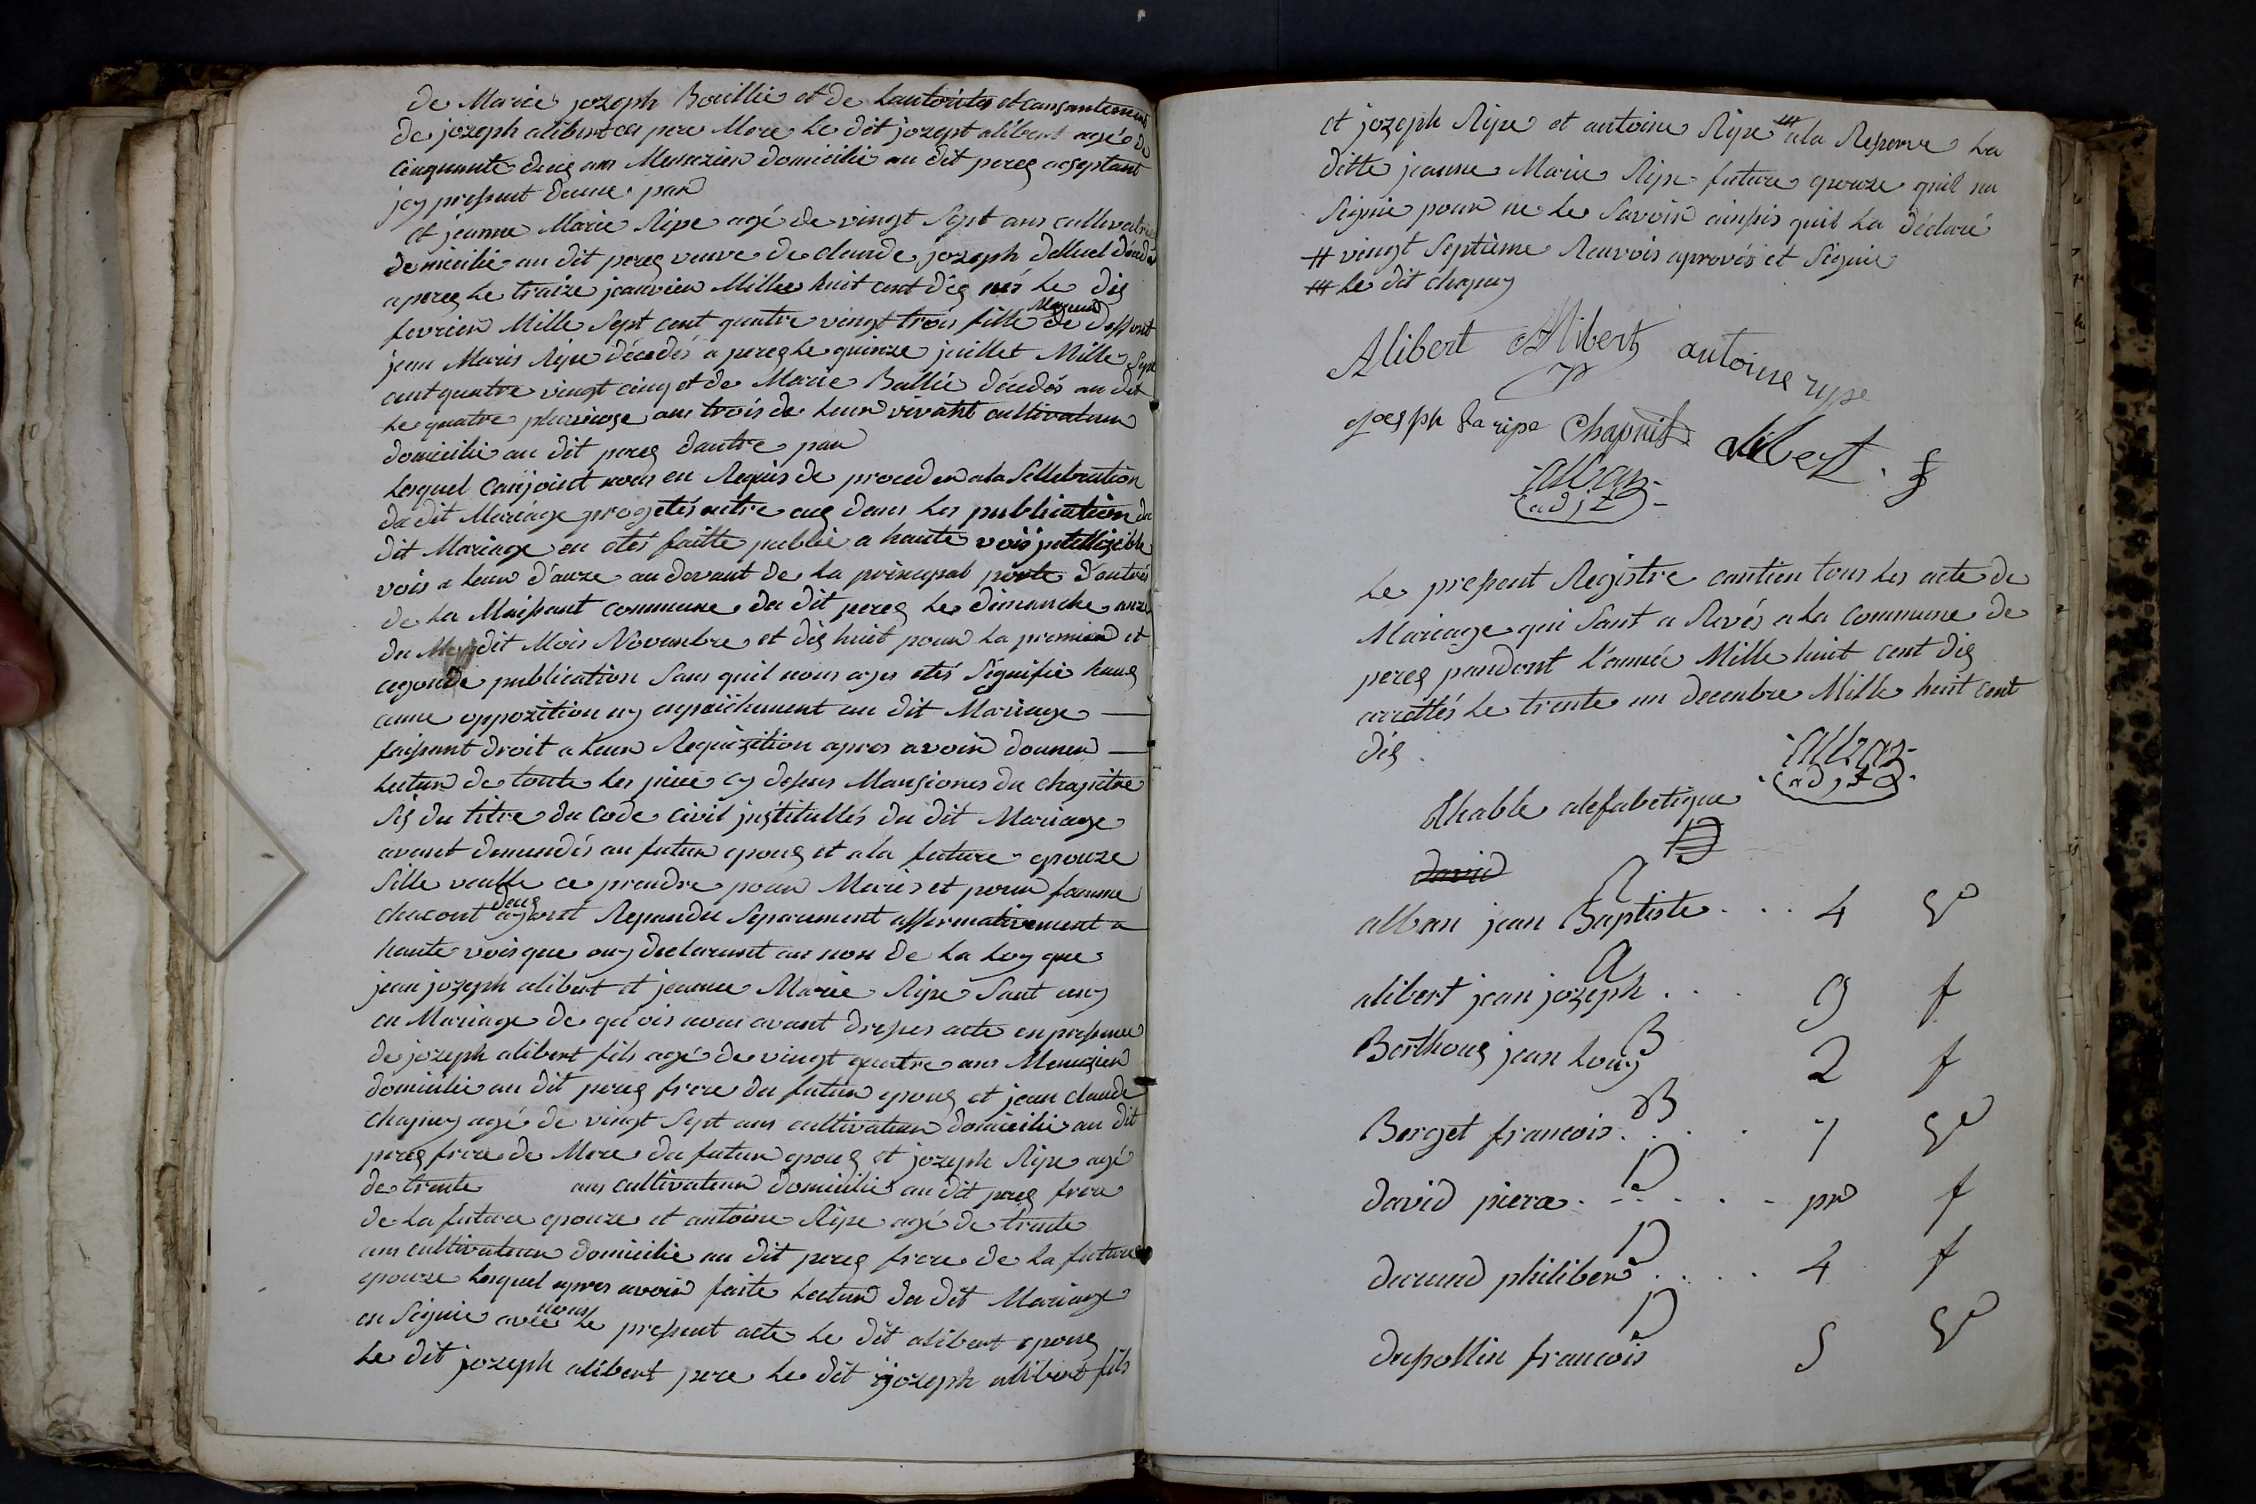 de Marie jozeph Bouillie et de Lautorités et consantement
de jozeph alibert ces pere More Le dit jozept alibert agé de
cinquante deuq ans Menuzier domicilie au dit pereg acseptant
jcy present dunne par
et jeanne Marie Ripe agé de vingt Sept ans cultivatrie
demicilie au dit pereg veuve de claude jozeph
apereg Le traize jeanvier Mille huit cent dég nés Le dig
fevrier Mille Sept cent quatre vingt trois fille Mageur de deffunt
jean Maris Ripe décedés a pereg Le quinze juillet Mille Sept
cent quatre vingt cinq et de Marie Bullie décédés au dit
Le quatre pluviose ans trois de Leur vivant cultivateur
domicilie au dit pereg dautre par
Lesquel conjoint nous en Requis de proceder ala Sellebration
du dit Mariage progetés entre eug dans Les publication du
dit Mariage en étés faitte publié a haute vois jntelligible
vois a leur d'onze au devant de La principal porte d'entrés
de La Maisont commune du dit pereg Le dimanche onze
du dit Mois Novembre et dig huit pour La premier et
cegonde publication Sans quil nous ayes étés Signifie haug
cunne oppozition ny enpaichement au dit Mariage
faisent droit a Leur Requizition apres avoir donner
Lectur de toute Les piece cy desus Mansiones du chapitre
Sig du titre du Code civil jnstitullés du dit Mariage
avant demendés au futur epoug et ala future epouze
Sille veulle ce prendre pour Maris et pour famme
chacont deug ayont Repondu Separement affirmativement a
haute vois que ouy declaront au nom de La Loy que
jean jozeph alibert et jeanne Marie Ripe Sont uny
en Mariage de quois nous avant dresser acte en presence
de jozeph alibert fils agé de vingt quatre ans Menuzier
domicilie au dit pereg frere du futur epoug et jean claude
chapuy agé de vingt Sept ans cultivateur domicilie au dit
pereg frere de Mere du futur epoug et jozeph Ripe agé
de trente ans cultivateur domicilie au dit pereg frere
de La future epouze et antoine Ripe agé de trente
ans cultivateur domicilie au dit pereg frere de La future
epouze Lesquel apres avoir faite Lectur du dit Mariage
en Signie avec nous Le present acte Le dit alibert epoug
Le dit jozeph alibert pere Le dit jozeph alibert fils
et jozeph Ripe et antoine Ripe ## ala Reserve La
ditte jeanne Marie Ripe future epouze quil na
Signie pour ne Le Savoir ainsis quil La déclaré
# vingt Septième Renvois aprovés et Signie
## Le dit chapuy
Alibert Alibert antoine rype
joesph Laripe Chapuis alibert
alban
adjt
Le present Registre contien tous Les acte de
Mariage qui Sont a Rivés a La Commune de
pereg pandont l'année Mille huit cent dig
arrettés Le trente un decembre Mille huit cent
dig.
alban
adjt
thable alefabetique
david
A
alban jean Baptiste . . . 4 Vo
A
alibert jean jozeph . . . 9 f
B
Berthoug jean Louy 2 f
B
Berget francois . . . . 7 Vo
D
david piere . . . . . pr f
D
durand philiber . . . . 4 f
D
dupollin francois 5 Vo